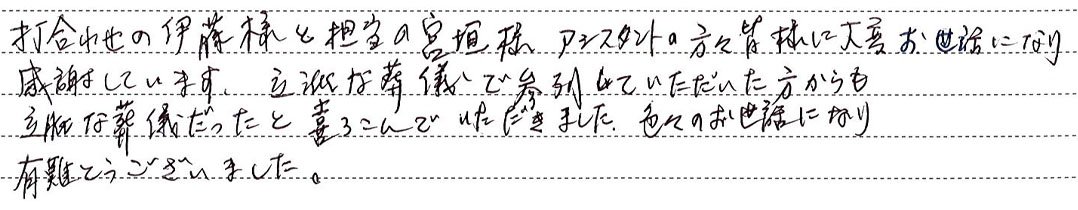 打合わせの伊藤様と担当の宮垣様 アシスタントの方々皆様に大変お世話になり
感謝しています。立派な葬儀で参列していただいた方からも
立派な葬儀だったと喜ろこんでいただきました。色々のお世話になり
有難とうございました。